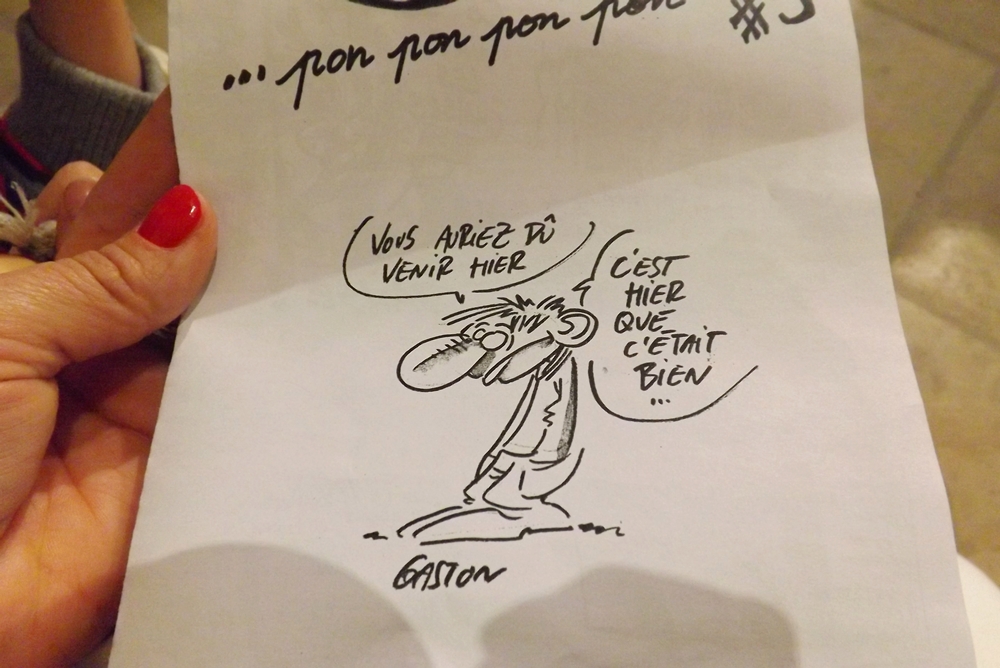 ... pon pon pon pon
VOUS AURIEZ DÛ
VENIR HIER
C'EST
HIER
QUE
C'ÉTAIT
BIEN
...
GASTON